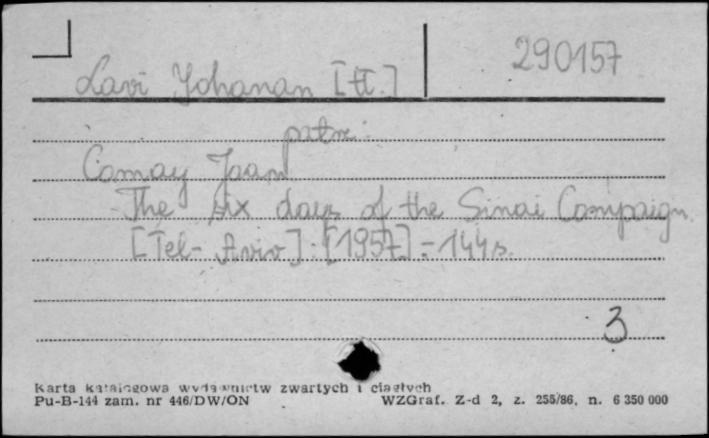 290157
Lavi Yohanan [tł.]
patrz:
Comay Joan
The six days of the Sinai Campaign.
[Tel-Aviv] : [1957] = 144 s.
3
Karta katalogowa wydawnictw zwartych i ciągłych
Pu-B-144 zam. nr 446/DW/ON WZGraf. Z-d 2, z. 255/86, n. 6 350 000